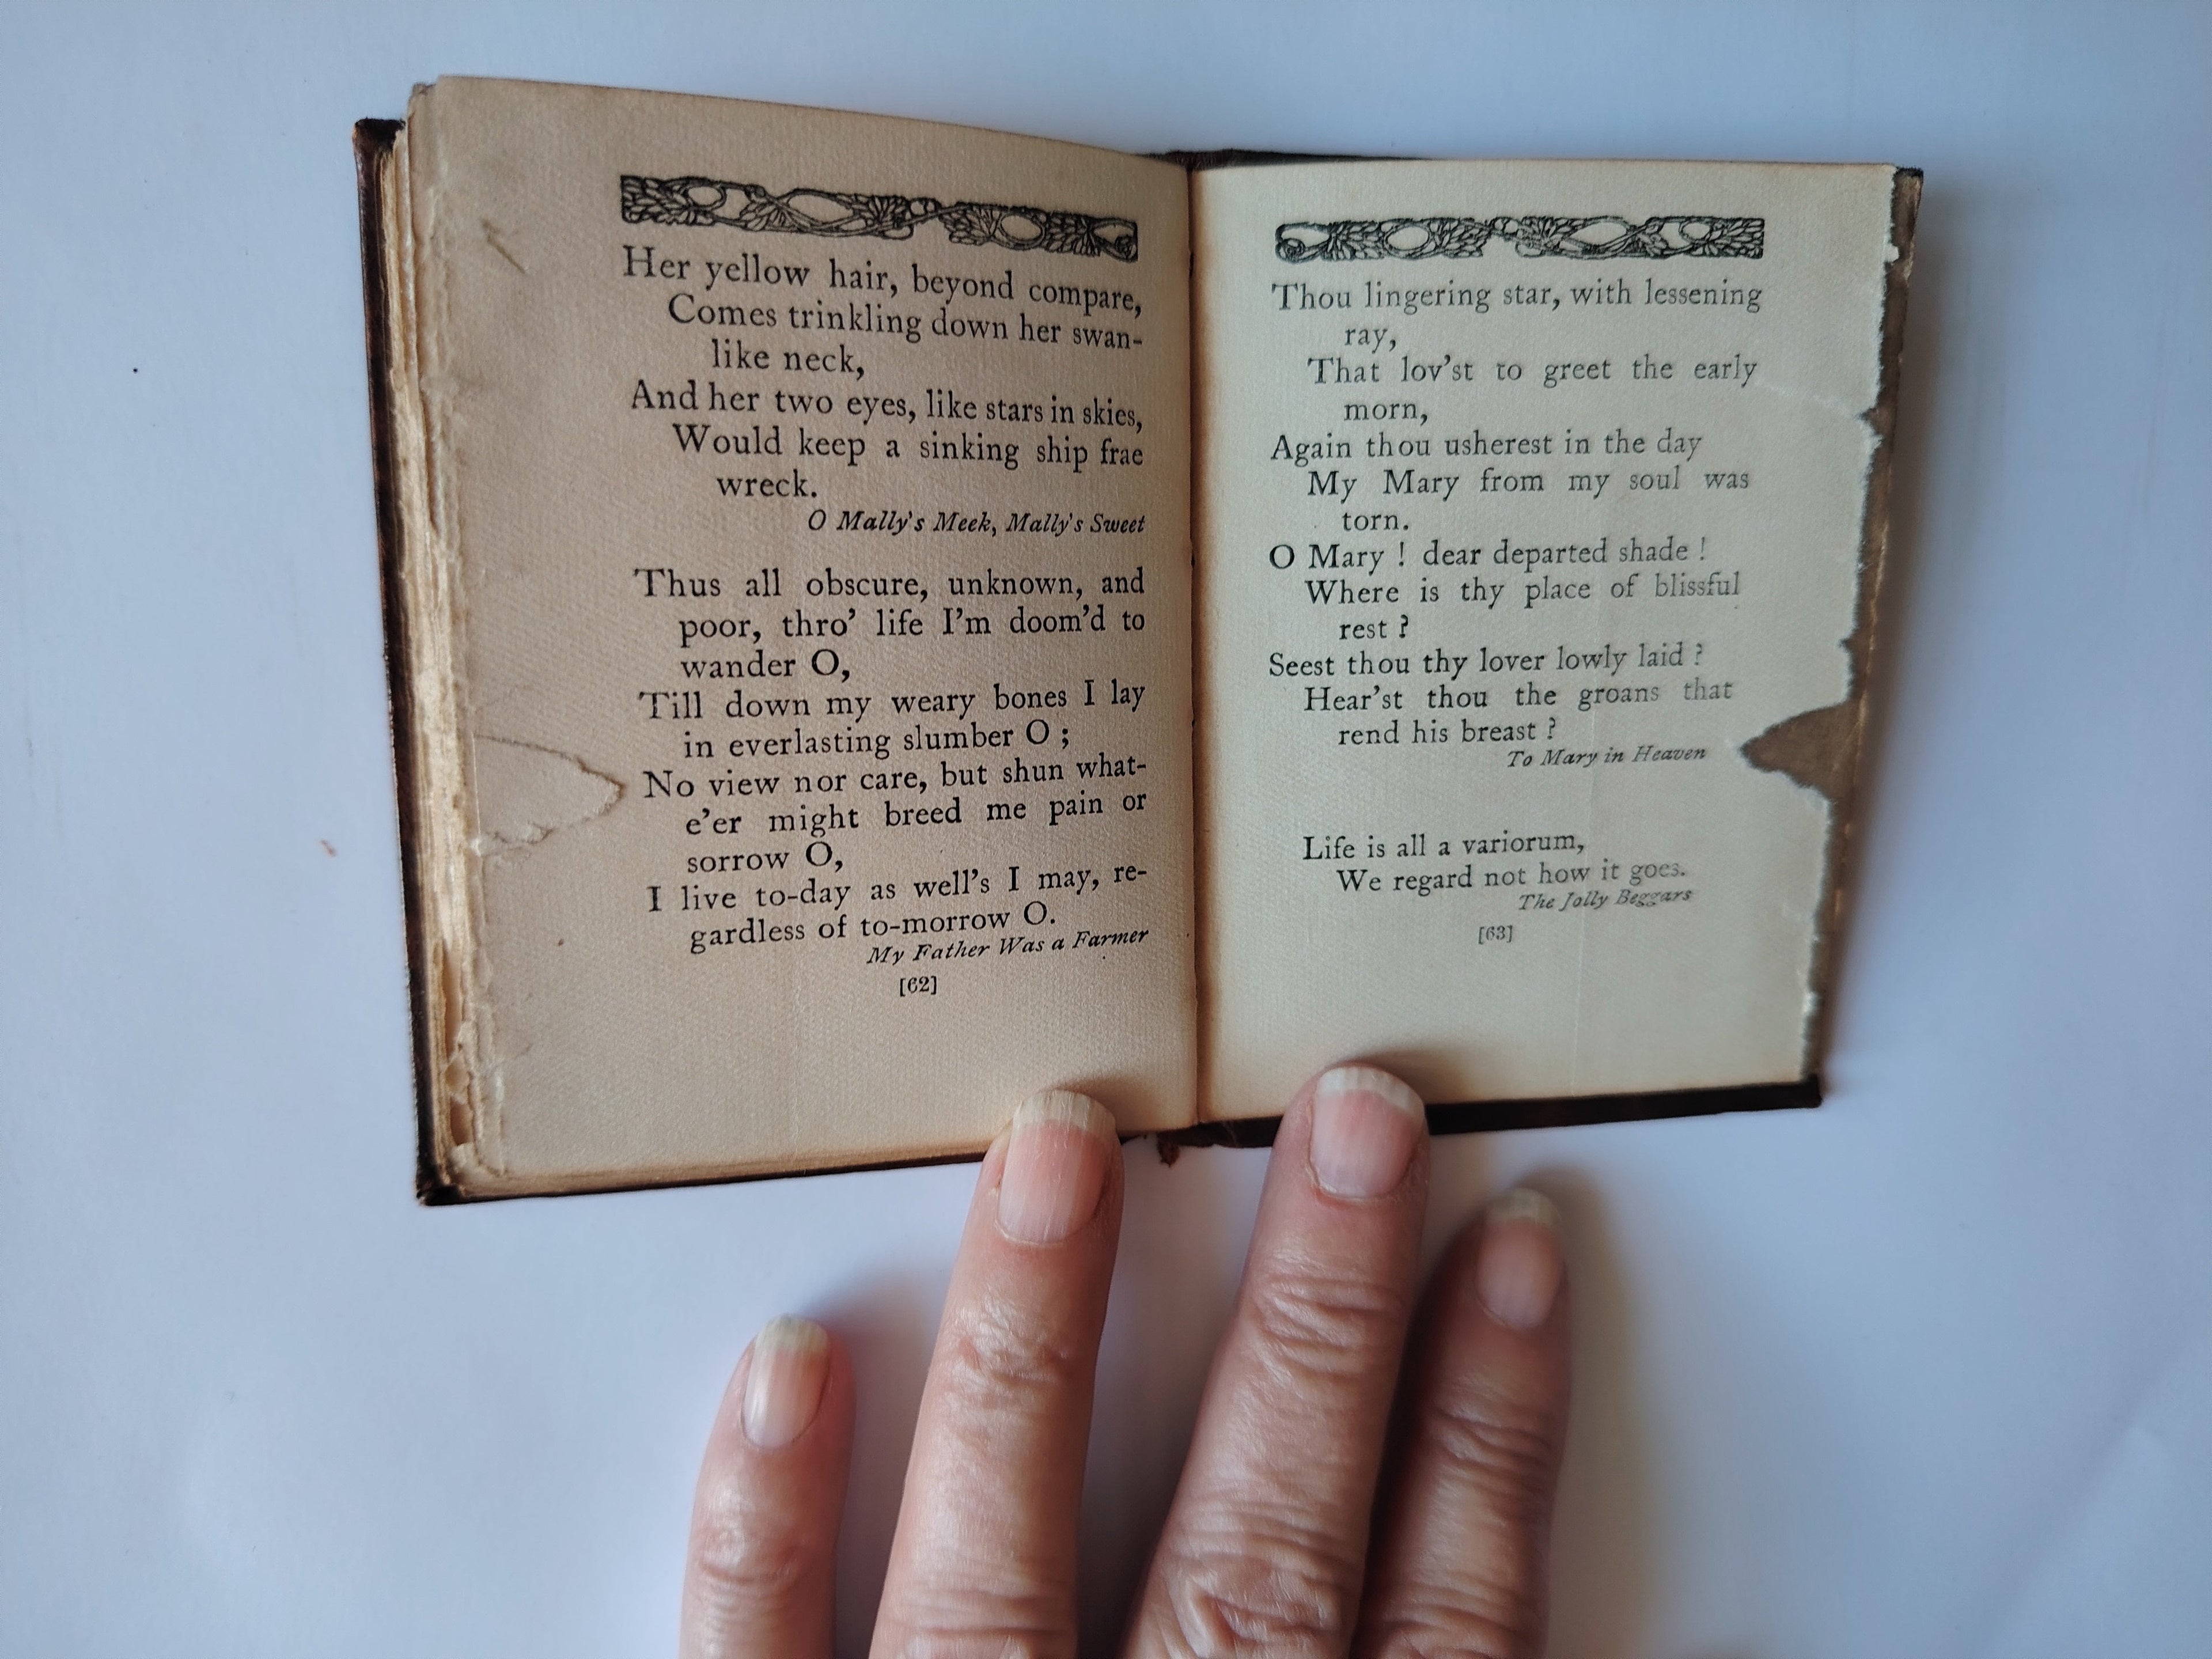 Her yellow hair, beyond compare,
Comes trinkling down her swan-
like neck,
And her two eyes, like stars in skies,
Would keep a sinking ship frae
wreck.
O Mally's Meek, Mally's Sweet
Thus all obscure, unknown, and
poor, thro' life I'm doom'd to
wander O,
Till down my weary bones I lay
in everlasting slumber O ;
No view nor care, but shun what-
e'er might breed me pain or
sorrow O,
I live to-day as well's I may, re-
gardless of to-morrow O.
My Father Was a Farmer
[62]
Thou lingering star, with lessening
ray,
That lov'st to greet the early
morn,
Again thou usherest in the day
My Mary from my soul was
torn.
O Mary ! dear departed shade !
Where is thy place of blissful
rest ?
Seest thou thy lover lowly laid ?
Hear'st thou the groans that
rend his breast ?
To Mary in Heaven
Life is all a variorum,
We regard not how it goes.
The Jolly Beggars
[63]